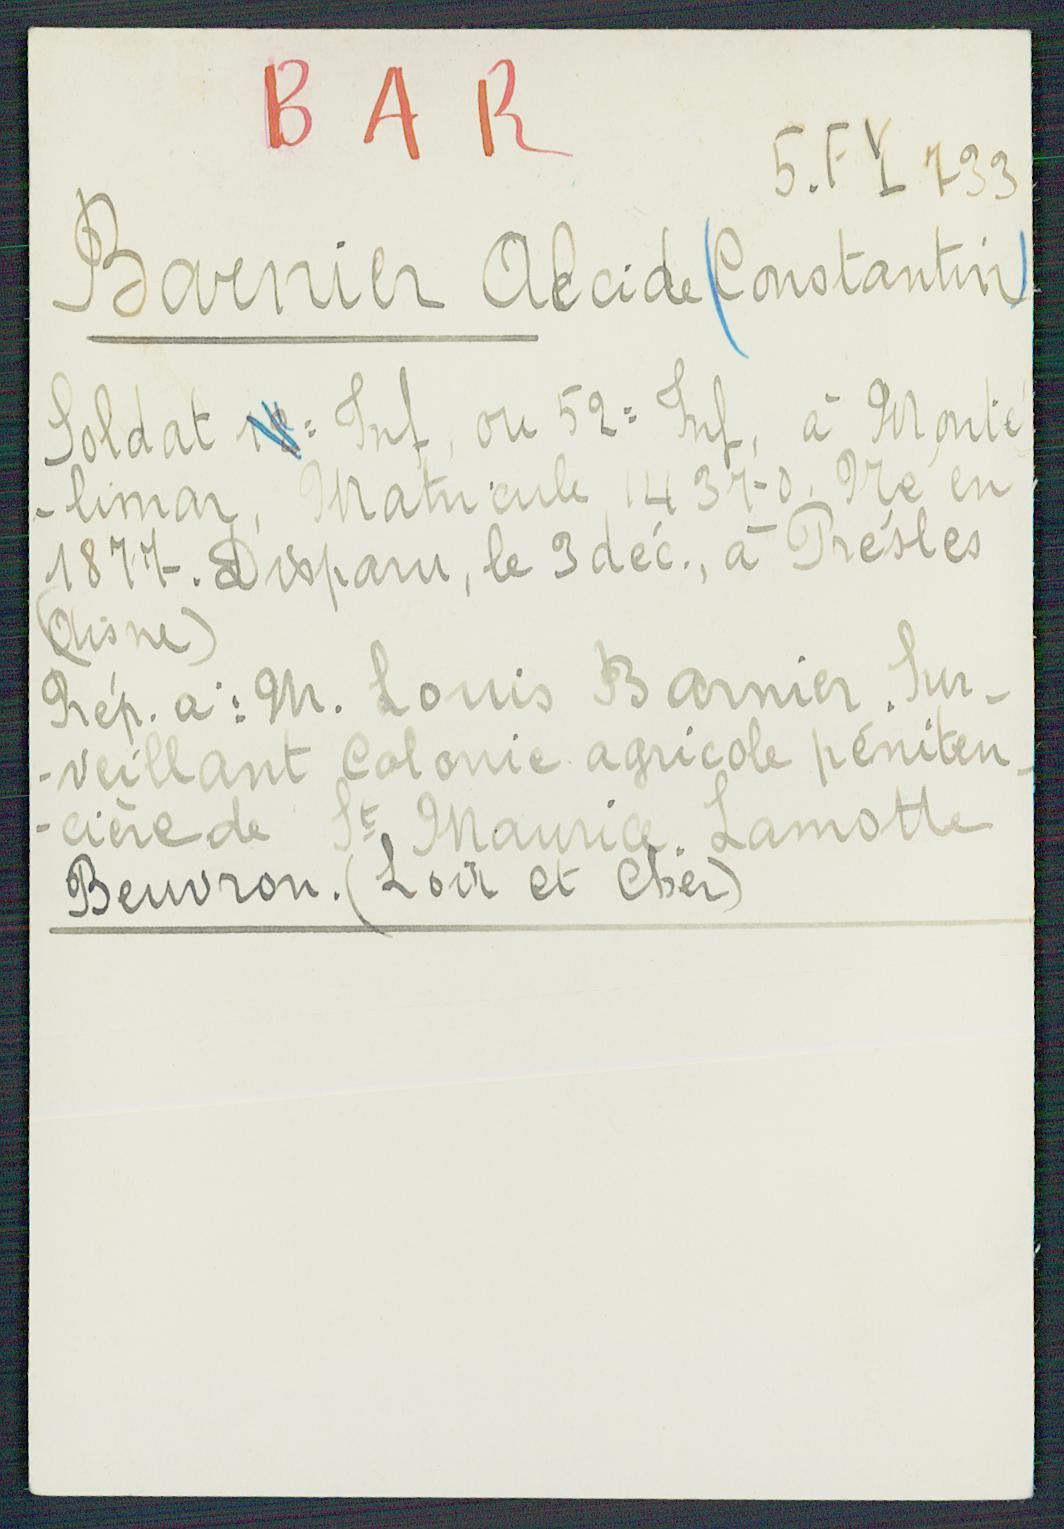 B A R
5.F 733
Barnier Alcide (Constantin)
Soldat Inf, ou 52= Inf, à Monté
-limar, Matricule 14370. Né en
1877. Disparu, le 3 déc., à Présles
(Aisne)
Rép. à: M. Louis Barnier. Sur-
-veillant Colonie agricole péniten-
-cière de St Maurice. Lamotte
Beuvron. (Loir et Cher)